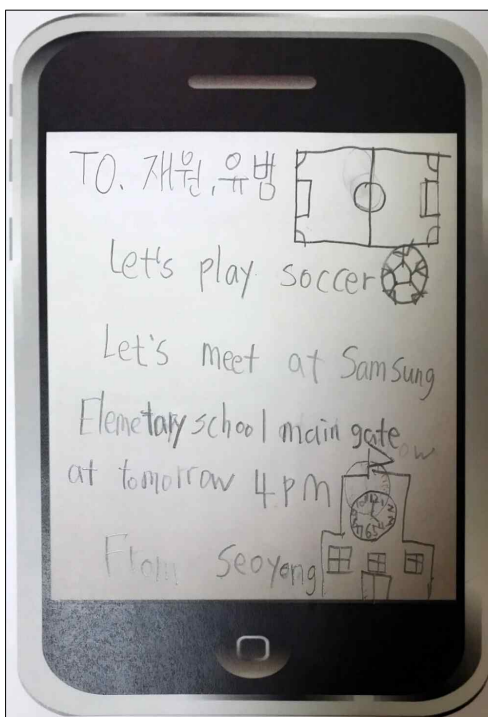 TO. 재원, 유범
Let's play soccer
Let's meet at Samsung
Elemetary school main gate
at tomorrow 4 PM
From Seoyong